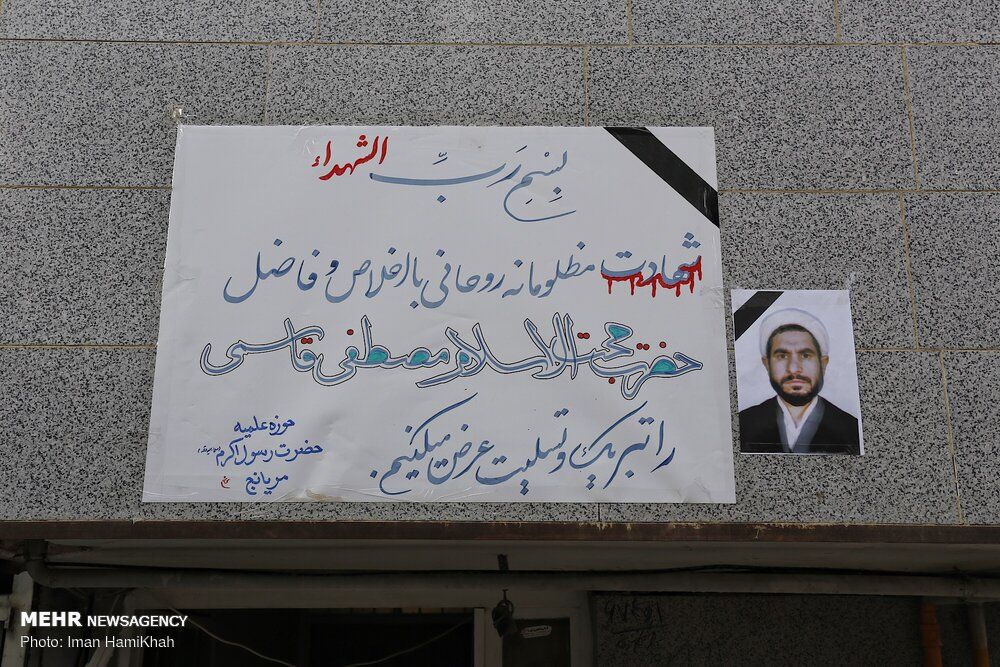 بِسْمِ رَبِّ الشهداء
شهادت مظلومانه روحانی با اخلاص و فاضل
حضرت حجت الاسلام مصطفی قاسمی
را تبریک و تسلیت عرض میکنیم.
حوزه علمیه
حضرت رسول اکرم
مریانج
MEHR NEWSAGENCY
Photo: Iman HamiKhah